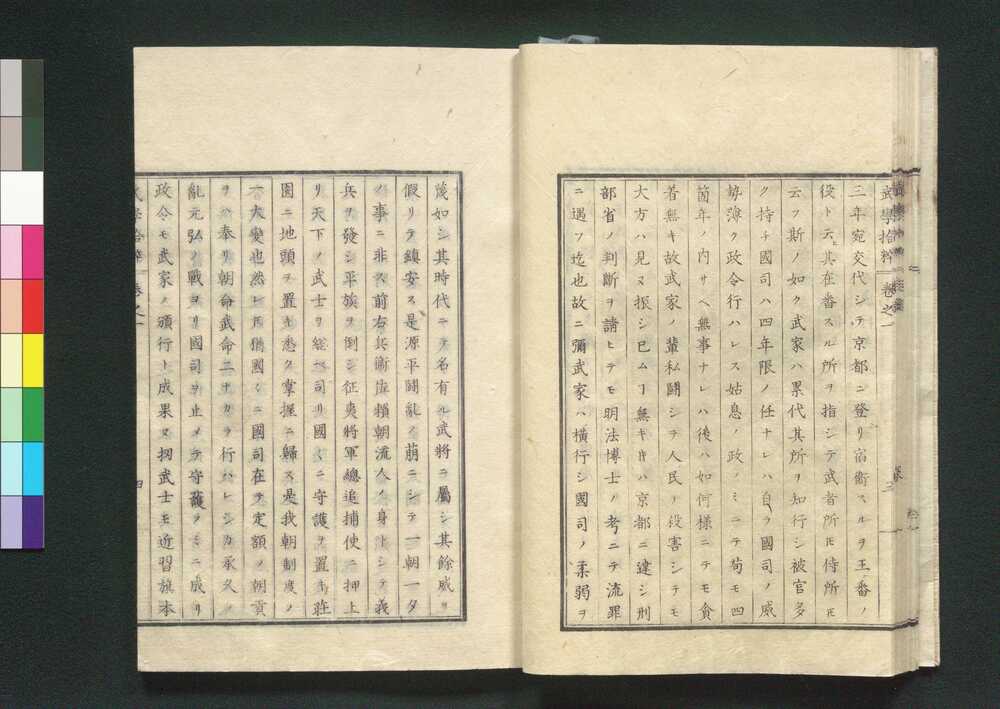 武學拾粹 卷之一
三年宛交代シテ京都ニ登リ宿衞スルヲ王番ノ
役ト云其在番スル所ヲ指シテ武者所𪜈侍所𪜈
云フ斯ノ如ク武家ハ累代其所ヲ知行シ被官多
ク持チ國司ハ四年限ノ任ナレハ自ラ國司ノ威
勢薄ク政令行ハレス姑息ノ政ノミニテ苟モ四
箇年ノ内サヘ無事ナレハ後ハ如何樣ニテモ貪
着無キ故武家ノ輩私鬪シテ人民ヲ殺害シテモ
大方ハ見ヌ振シ已ムヿ無キ時ハ京都ニ達シ刑
部省ノ判斷ヲ請ヒテモ明法博士ノ考ニテ流罪
ニ遇フ迄也故ニ彌武家ハ橫行シ國司ノ柔弱ヲ
蔑如シ其時代ニテ名有ル武將ニ屬シ其餘威ヲ
假リテ鎭安ス是源平鬪亂ノ萠ニシテ一朝一夕
ノ事ニ非ス前右兵衞佐賴朝流人ノ身トシテ義
兵ヲ發シ平族ヲ倒シ征夷將軍總追捕使ニ押上
リ天下ノ武士ヲ總司リ國々ニ守護ヲ置キ莊
園ニ地頭ヲ置キ悉ク掌握ニ歸ス是我朝制度ノ
一大變也然レ𪜈猶國々ニ國司在テ定額ノ朝貢
ヲハ奉リ朝命武命二ナカラ行ハレシカ承久ノ
亂元弘ノ戰ヨリ國司ヲ止メテ守護ノミニ成リ
政令モ武家ノ頒行ト成果ヌ扨武士モ近習旗本
武學拾粹 卷之一 四